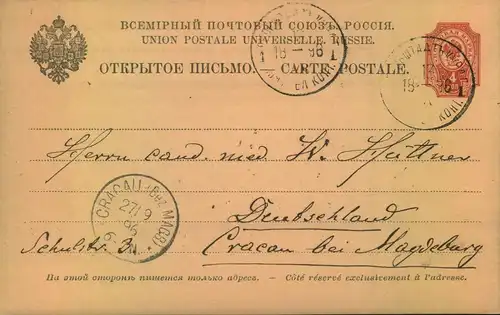 ВСЕМІРНЫЙ ПОЧТОВЫЙ СОЮЗЪ. РОССІЯ.
UNION POSTALE UNIVERSELLE. RUSSIE.
ОТКРЫТОЕ ПИСЬМО. — CARTE POSTALE.
18 96
1 1
18 96 1
Herrn cand. med W. Hüttner
Deutschland
Schulstr. 3
Cracau bei Magdeburg
CRACAU (Bez. MAGD.)
27/9
96
На этой сторонѣ пишется только адресъ. — Côté réservé exclusivement à l'adresse.